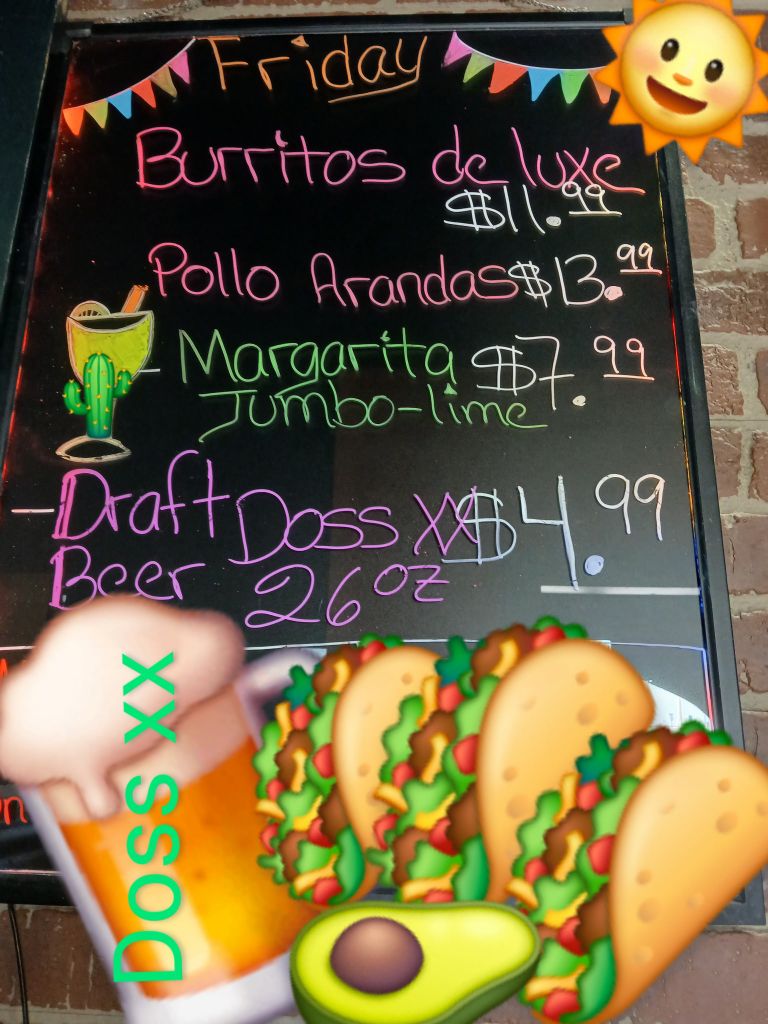 Friday
Burritos de luxe
$11.99
Pollo Arandas $13.99
- Margarita $7.99
Jumbo-lime
- Draft Doss XX $4.99
Beer 26 oz
Doss xx